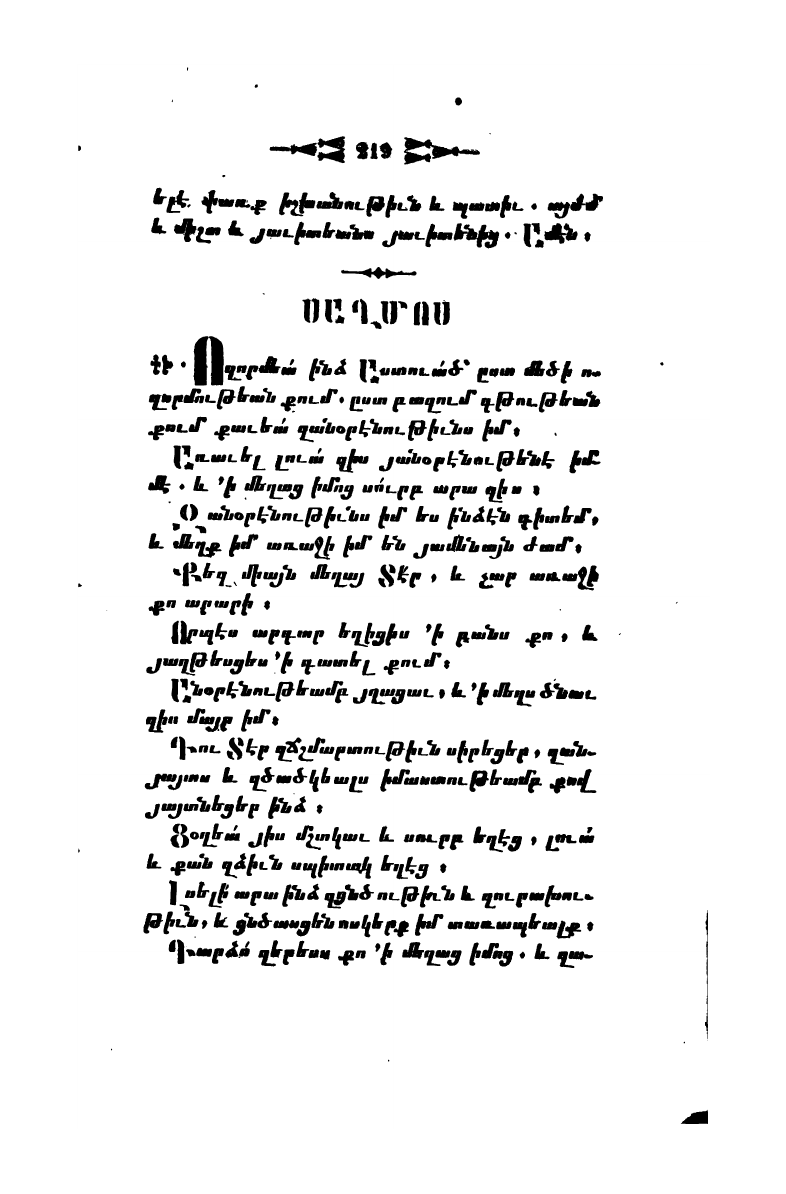 219
ելէ. փառք իշխանութիւն և պատիւ. այժմ
և միշտ և յաւիտեանս յաւիտենից. Ամէն։
ՍԱՂՄՈՍ
ծ. Ողորմեա՛ ինձ Աստուած՝ ըստ մեծի ո-
ղորմութեան քում. ըստ բազում գթութեան
քում քաւեա՛ զանօրէնութիւնս իմ։
Առաւել լուա՛ զիս յանօրէնութենէ իմ-
մէ. և ՚ի մեղաց իմոց սուրբ արա զիս։
Զանօրէնութիւնս իմ ես ինձէն գիտեմ,
և մեղք իմ առաջի իմ են յամենայն ժամ։
Քեզ միայն մեղայ Տէր, և չար առաջի
քո արարի։
Որպէս արդար եղիցիս ՚ի բանս քո, և
յաղթեսցես ՚ի դատել քում։
Անօրէնութեամբ յղացաւ, և ՚ի մեղս ծնաւ
զիս մայր իմ։
Դու Տէր զճշմարտութիւն սիրեցեր, զան-
յայտս և զծածկեալս իմաստութեամբ քով
յայտնեցեր ինձ։
Ցօղեա՛ յիս մշտկաւ և սուրբ եղէց, լուա՛
և քան զձիւն սպիտակ եղէց։
Լսելի՛ արա ինձ զցնծութիւն և զուրախու-
թիւն, և ցնծասցեն ոսկերք իմ տառապեալք։
Դարձո՛ զերեսս քո ՚ի մեղաց իմոց. և զա-